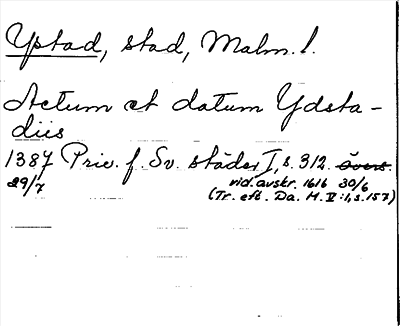 Ystad, stad, Malm. l.
Actum et datum Ydsta-
diis
1387 Priv. f. Sv. städer I, s. 312. övers.
29/7 vid. avskr. 1616 30/6
(Tr. eft. Da. M. V:1, s. 157)